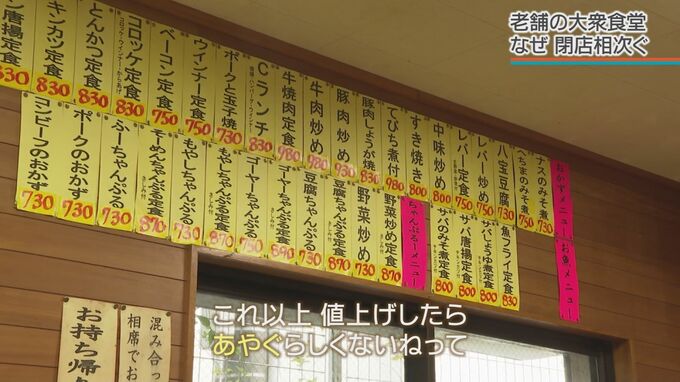 老舗の大衆食堂
なぜ 閉店相次ぐ
おかずメニュー
ナスのみそ煮 730
へちまのみそ煮 730
八宝豆腐 730
レバー炒め 750
レバー定食 750
中味炒め 800
すき焼き 800
てびち煮付 980
豚肉しょうが焼 830
豚肉炒め 930
牛肉炒め 980
牛焼肉定食 980
Cランチ 830
ポークと玉子焼
ウインナー定食 750
ベーコン定食 750
コロッケ定食 830
とんかつ定食 830
キンカツ定食 830
ン唐揚定食 830
お魚メニュー
魚フライ定食 800
サバしょうゆ煮定食 800
サバ唐揚定食 800
サバのみそ煮定食 800
ちゃんぷるーメニュー
野菜炒め定食 870
野菜炒め 730
豆腐ちゃんぷる定食 870
豆腐ちゃんぷる 730
ゴーヤーちゃんぷる定食
ゴーヤーちゃんぷる
もやしちゃんぷる定食 870
もやしちゃんぷる 730
そーめんちゃんぷる定食 870
そーめんちゃんぷる 730
ふーちゃんぷる 730
ポークのおかず 730
コンビーフのおかず 730
混み合っ
相席でお
お持ち帰り
これ以上 値上げしたら
あやぐらしくないねって